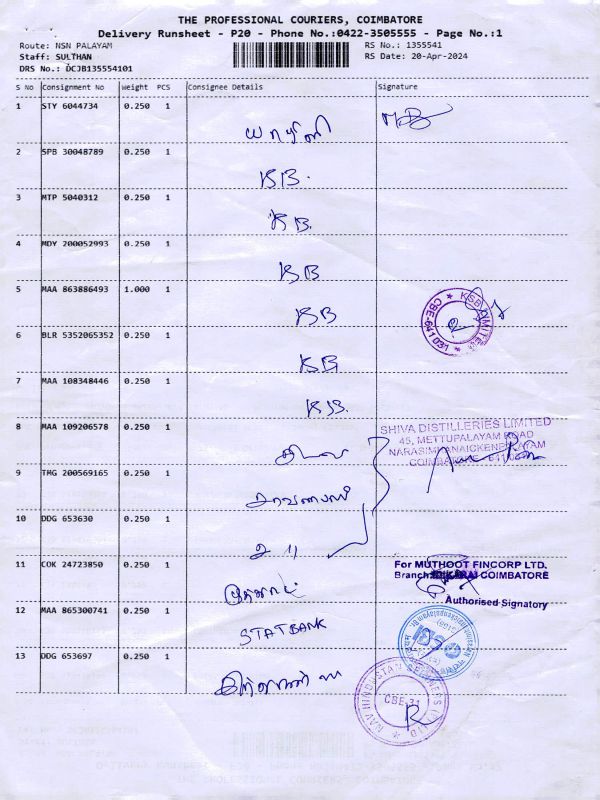 THE PROFESSIONAL COURIERS, COIMBATORE
Delivery Runsheet - P20 - Phone No.:0422-3505555 - Page No.:1
Route: NSN PALAYAM RS No.: 1355541
Staff: SULTHAN RS Date: 20-Apr-2024
DRS No.: DCJB135554101
S No Consignment No Weight PCS Consignee Details Signature
1 STY 6044734 0.250 1
2 SPB 30048789 0.250 1 KB.
3 MTP 5040312 0.250 1 KB.
4 MDY 200052993 0.250 1 KB
5 MAA 863886493 1.000 1 KB
KSB LIMITED CBE-641031
6 BLR 5352065352 0.250 1 KB
7 MAA 108348446 0.250 1 KB.
8 MAA 109206578 0.250 1 சிவா
SHIVA DISTILLERIES LIMITED
45, METTUPALAYAM ROAD
NARASIMHANAICKENPALAYAM
COIMBATORE
9 TMG 200569165 0.250 1
10 DDG 653630 0.250 1
11 COK 24723850 0.250 1
For MUTHOOT FINCORP LTD.
Branch: COIMBATORE
Authorised Signatory
12 MAA 865300741 0.250 1 STATBANK
13 DDG 653697 0.250 1
CBE-31